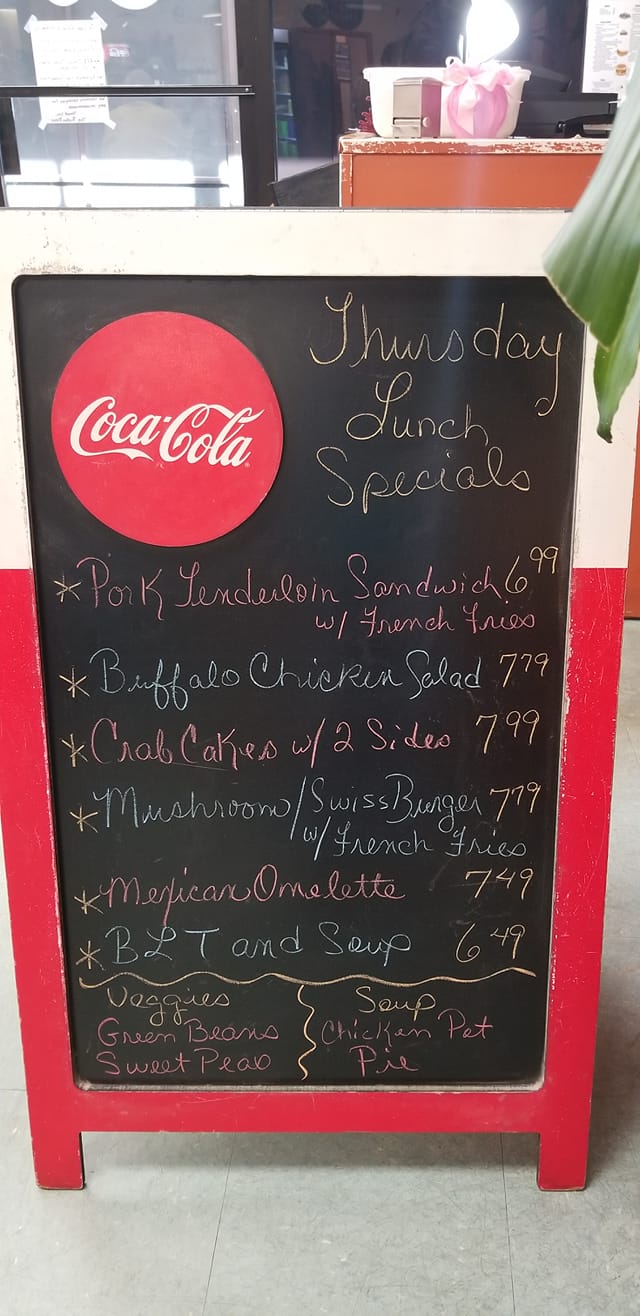 Coca-Cola
Thursday
Lunch
Specials
* Pork Tenderloin Sandwich 6 99
w/ French Fries
* Buffalo Chicken Salad 7 79
* Crab Cakes w/ 2 Sides 7 99
* Mushroom/Swiss Burger 7 79
w/ French Fries
* Mexican Omelette 7 49
* BLT and Soup 6 49
Veggies
Green Beans
Sweet Peas
Soup
Chicken Pot
Pie